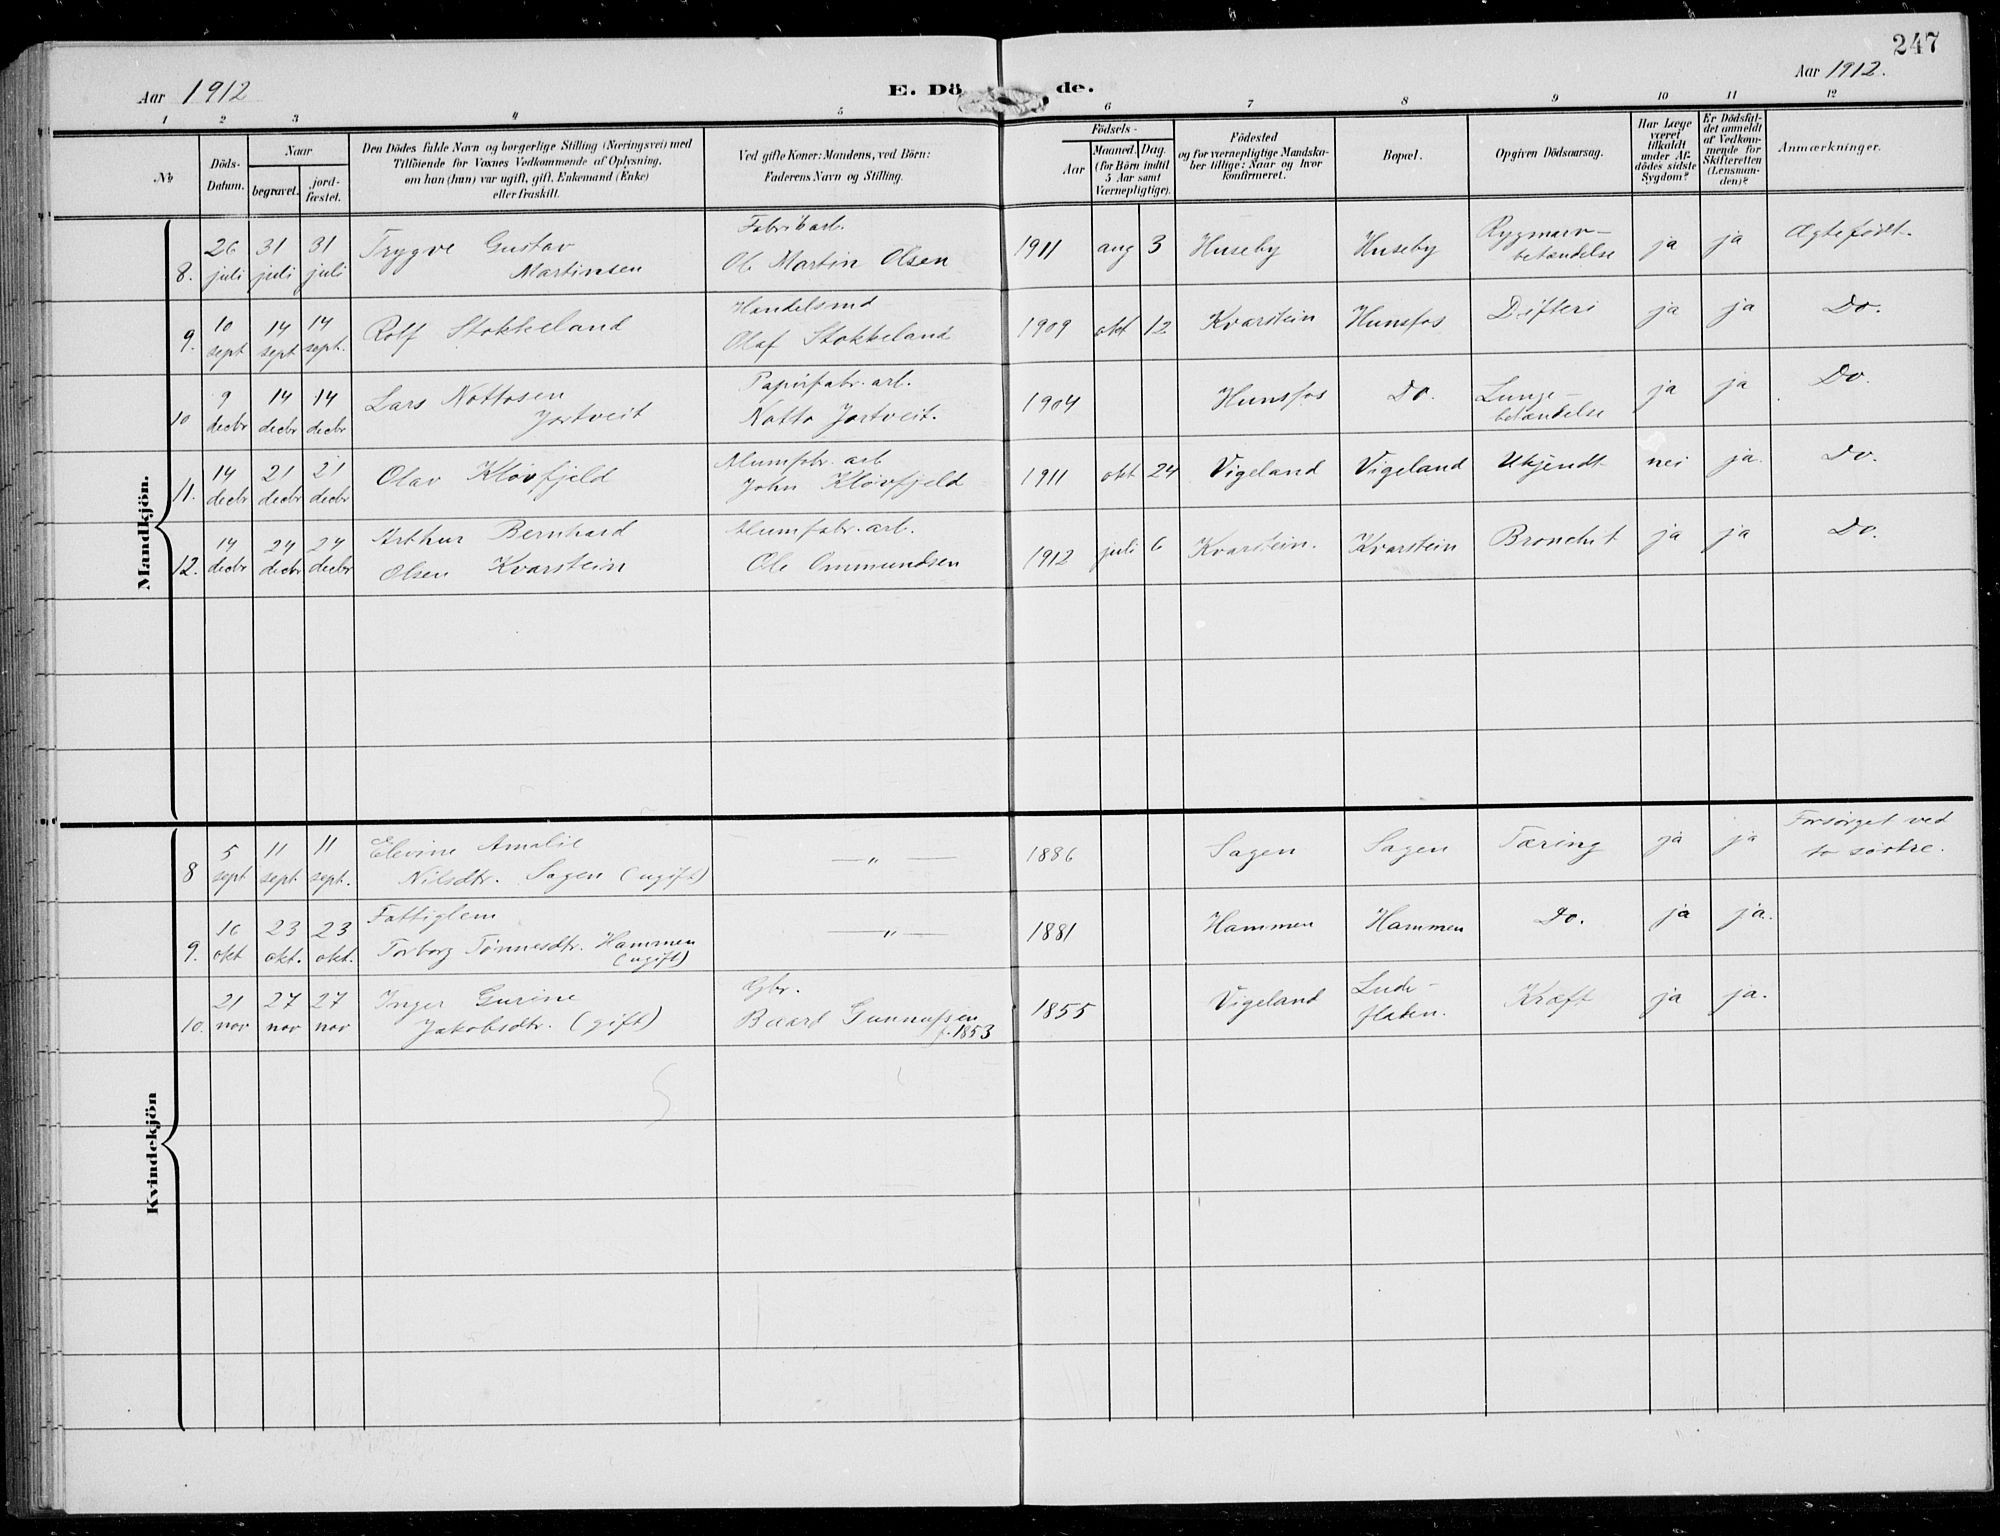 247
Aar 1912
E. Dö de.
Aar 1912.
1 2 3 4 5 6 7 8 9 10 11 12
No
Döds-
Datum.
Naar
begravet.
jord-
fæstet.
Den Dödes fulde Navn og borgerlige Stilling (Næringsvei) med
Tilföiende for Voxnes Vedkommende af Oplysning,
om han (hun) var ugift, gift, Enkemand (Enke)
eller fraskilt.
Ved gifte Koner: Mandens, ved Börn:
Faderens Navn og Stilling.
Födsels-
Aar
Maaned. Dag.
(for Börn indtil
5 Aar samt
Værnepligtige).
Födested
og for værnepligtige Mandska-
ber tillige: Naar og hvor
konfirmeret.
Bopæl.
Opgiven Dödsaarsag.
Har Læge
været
tilkaldt
under Af-
dödes sidste
Sygdom?
Er Dödsfal-
det anmeldt
af Vedkom-
mende for
Skifteretten
(Lensman-
den)?
Anmærkninger.
Mandkjön.
8. 26 juli 31 juli 31 juli Trygve Gustav Martinsen Fabrikarb. Ole Martin Olsen 1911 aug 3 Huseby Huseby Rygmarv-betændelse ja ja Ægtefødt.
9. 10 sept 14 sept 14 sept. Rolf Stokkeland Handelsmd Olaf Stokkeland 1909 okt 12 Kvarstein Hunsfos Difteri ja ja Do.
10 9 decbr 14 decbr 14 decbr Lars Nottosen Jortveit Papirfabr. arb. Notto Jortveit. 1904 Hunsfos Do. Lunge-betændelse ja ja Do.
11. 14 decbr 21 decbr 21 decbr Olav Kløvfjeld Alumfabr. arb John Kløvfjeld 1911 okt 24 Vigeland Vigeland Ukjendt nei ja. Do.
12. 14 decbr 24 decbr 24 decbr Arthur Bernhard Olsen Kvarstein Alumfabr. arb. Ole Ommundsen 1912 juli 6 Kvarstein. Kvarstein Bronchit ja ja Do.
Kvindekjön
8 5 sept 11 sept 11 sept. Elevine Amalie Nilsdtr. Sagen (ugift) — „ — 1886 Sagen Sagen Tæring ja ja Forsørget ved to søstre.
9. 16 okt 23 okt. 23 okt. Fattiglem Torborg Tønnesdtr. Hammen (ugift) — „ — 1881 Hammen Hammen Do. ja ja.
10. 21 nov 27 nov 27 nov Inger Gurine Jakobsdtr. (gift) Gbr. Baard Gunnufsen f. 1853 1855 Vigeland Lude-flaten. Kræft ja ja.